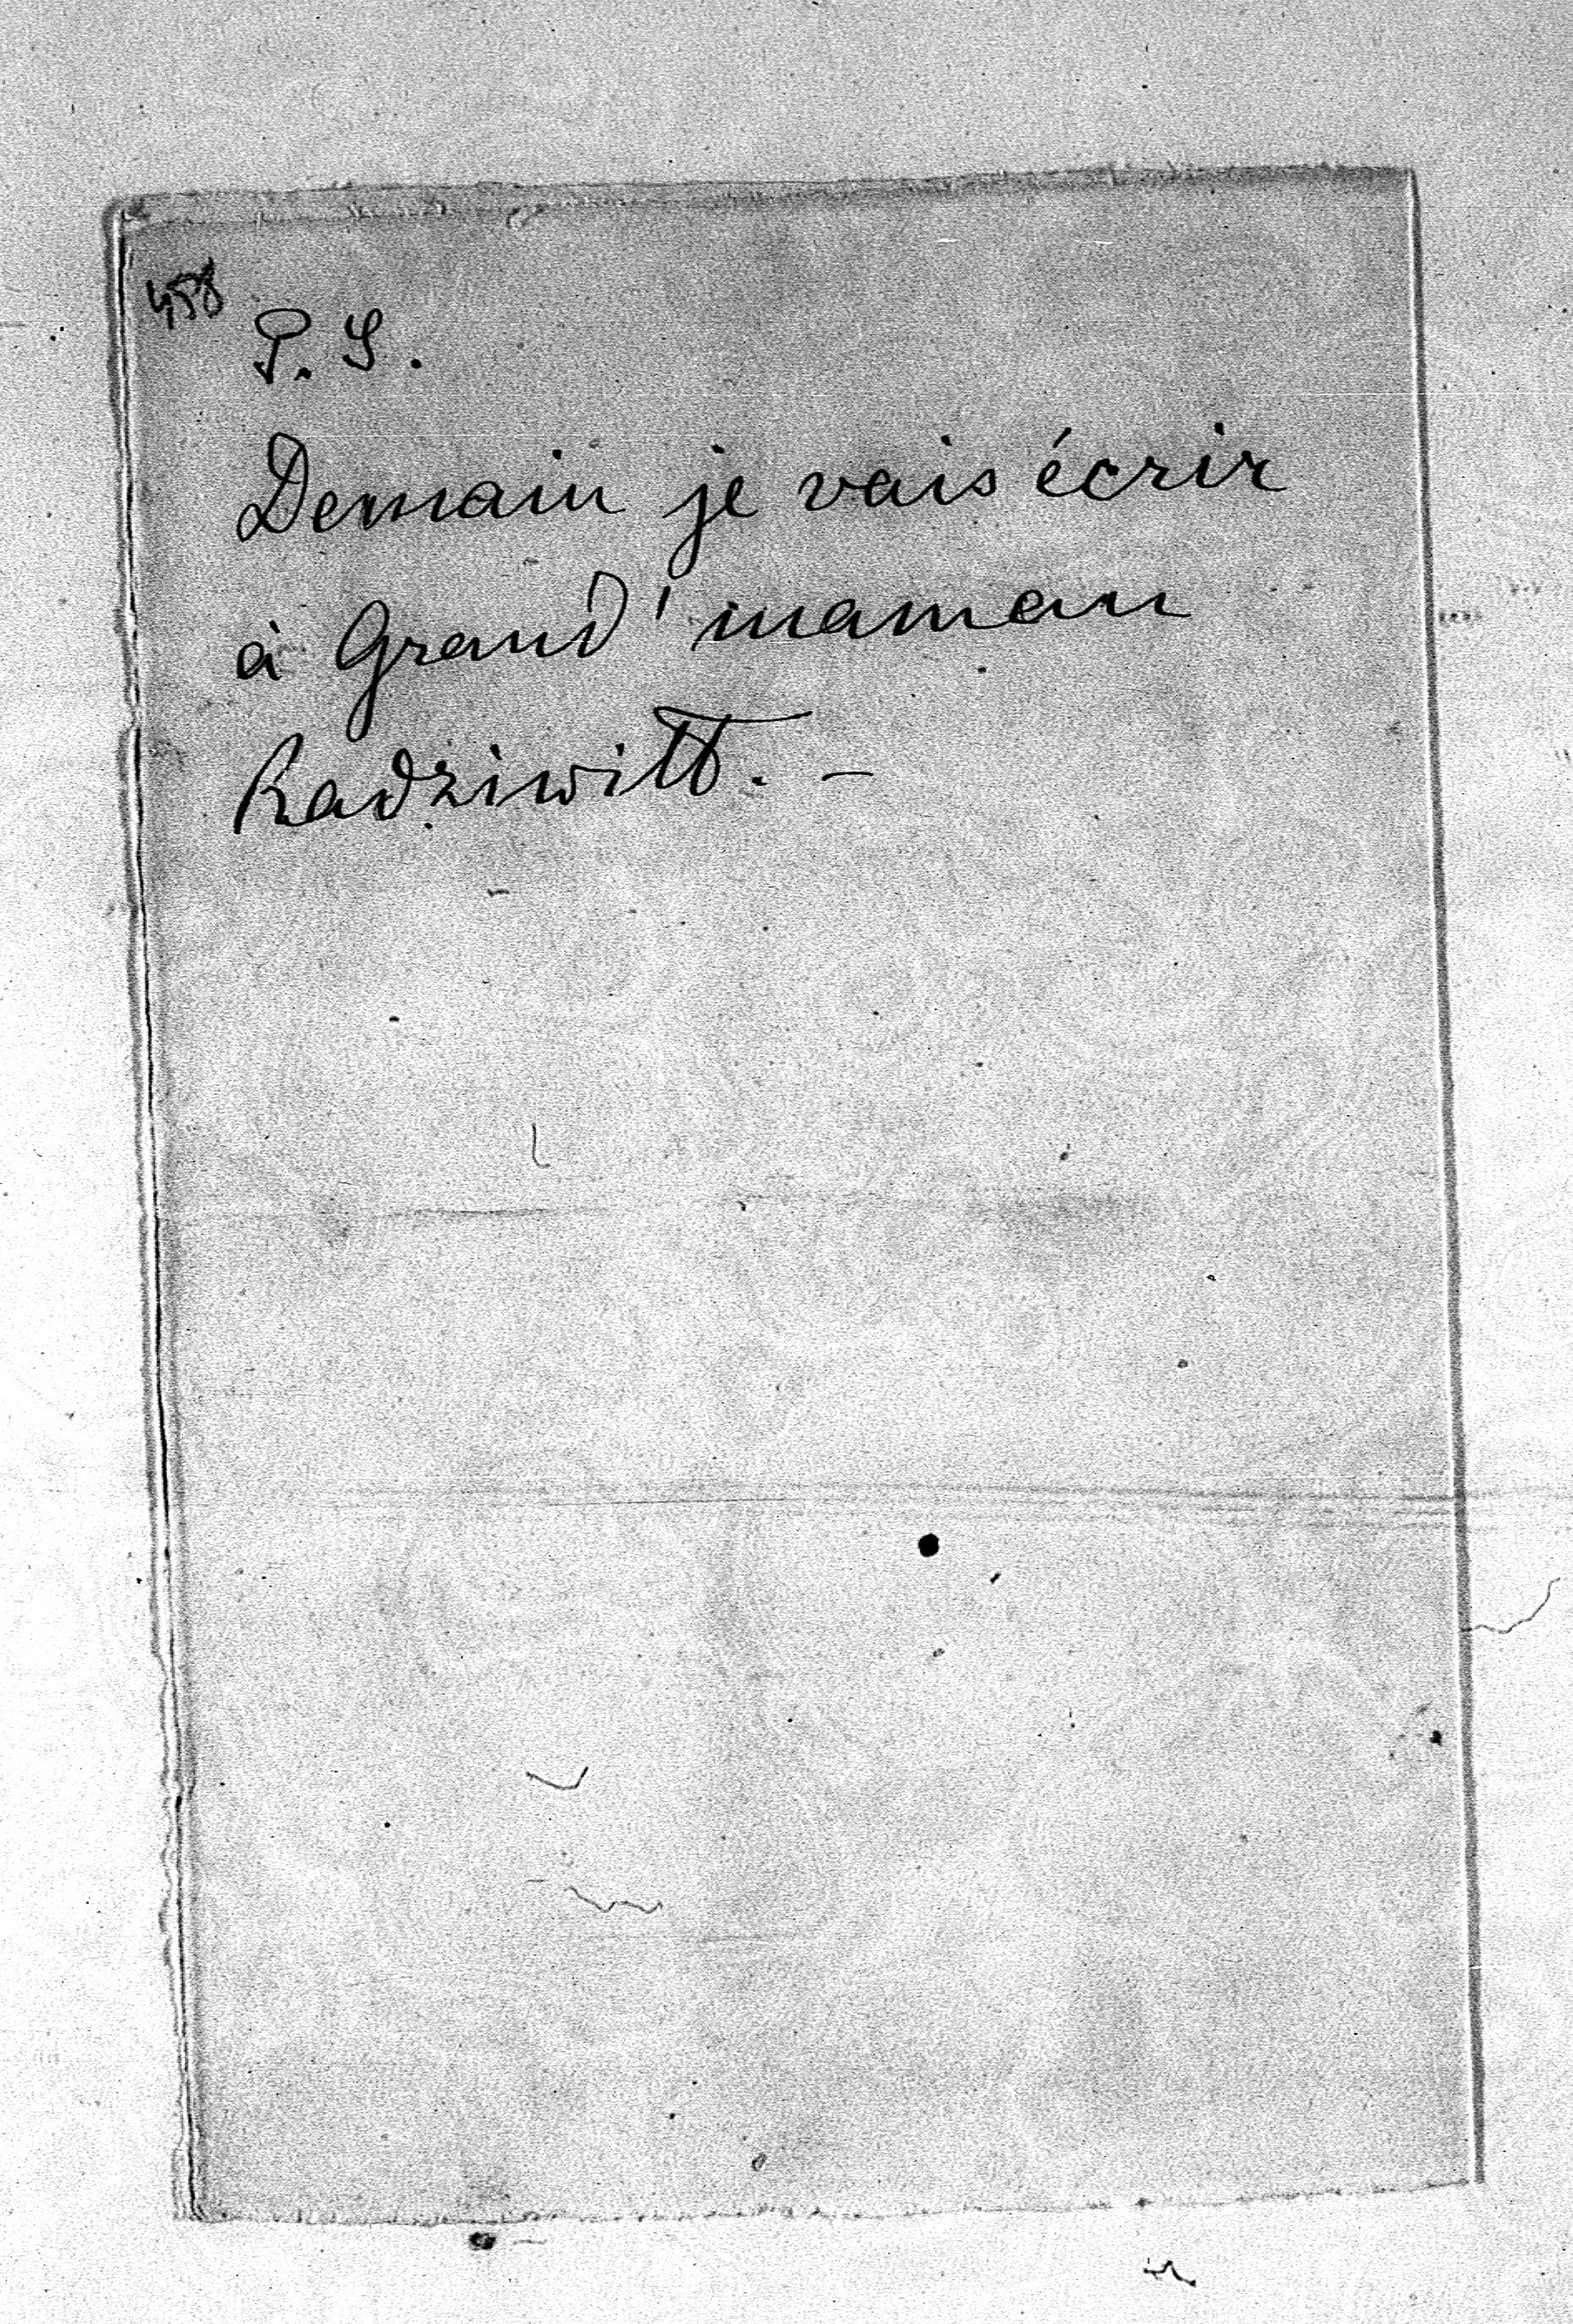 458
P. S.
Demain je vais écrir
à Grand'maman
Radziwiłł. –